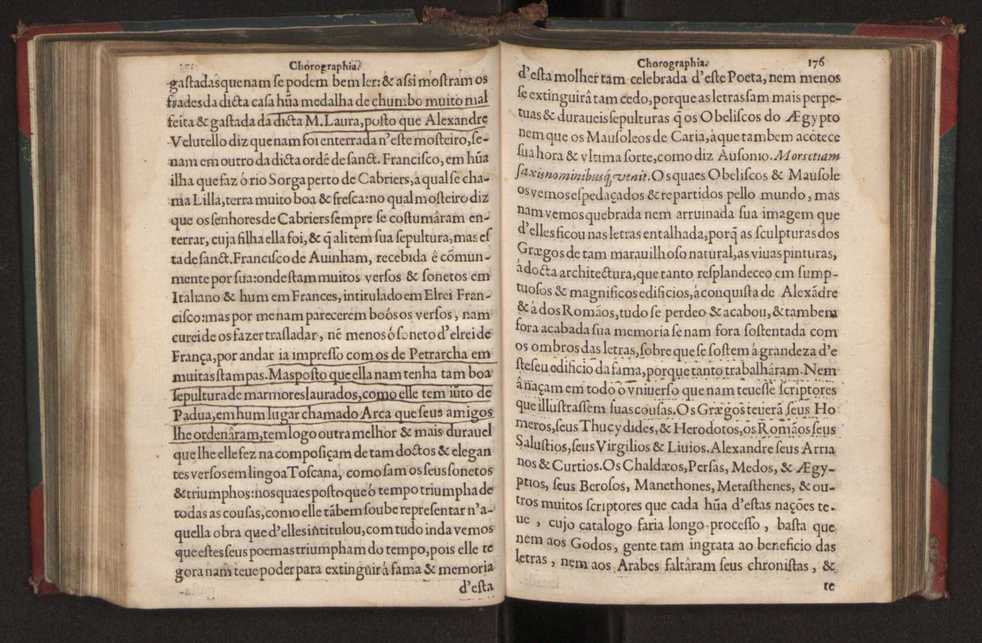 Chorographia.
gastadas que nam se podem bem ler: & assi mostram os
frades da dicta casa hũa medalha de chumbo muito mal
feita & gastada da dicta M. Laura, posto que Alexandre
Velutello diz que nam foi enterrada n'este mosteiro, se-
nam em outro da dicta ordẽ de sanct. Francisco, em hũa
ilha que faz ó rio Sorga perto de Cabriers, à qual se cha-
ma Lilla, terra muito boa & fresca: no qual mosteiro diz
que os senhores de Cabriers sempre se costumâram en-
terrar, cuja filha ella foi, & q̃ ali tem sua sepultura, mas es
ta de sanct. Francisco de Auinham, recebida ê cõmun-
mente por sua: onde stam muitos versos & sonetos em
Italiano & hum em Frances, intitulado em Elrei Fran-
cisco: mas por me nam parecerem boõs os versos, nam
curei de os fazer trasladar, nẽ menos ó soneto d'elrei de
França, por andar ia impresso com os de Petrarcha em
muitas stampas. Mas posto que ella nam tenha tam boa
sepultura de marmores laurados, como elle tem iũto de
Padua, em hum lugar chamado Arca que seus amigos
lhe ordenâram, tem logo outra melhor & mais durauel
que lhe elle fez na composiçam de tam doctos & elegan
tes versos em lingoa Toscana, como sam os seus sonetos
& triumphos: nos quaes posto que ó tempo triumpha de
todas as cousas, como elle tãbem soube representar n'a-
quella obra que d'elles intitulou, com tudo inda vemos
que estes seus poemas triumpham do tempo, pois elle te
gora nam teue poder para extinguir á fama & memoria
d'esta
Chorographia.
176
d'esta molher tam celebrada d'este Poeta, nem menos
se extinguirâ tam cedo, porque as letras sam mais perpe-
tuas & duraueis sepulturas q̃ os Obeliscos do Ægypto
nem que os Mausoleos de Caria, à que tambem acõtece
sua hora & vltima sorte, como diz Ausonio. Mors etiam
saxis nominibusq́; venit. Os quaes Obeliscos & Mausole
os vemos espedaçados & repartidos pello mundo, mas
nam vemos quebrada nem arruinada sua imagem que
d'elles ficou nas letras entalhada, porq̃ as sculpturas dos
Grægos de tam marauilhoso natural, as viuas pinturas,
á docta architectura, que tanto resplandeceo em sump-
tuosos & magnificos edificios, á conquista de Alexãdre
& á dos Romãos, tudo se perdeo & acabou, & tambem
fora acabada sua memoria se nam fora sostentada com
os ombros das letras, sobre que se sostem á grandeza d'e
ste seu edificio da fama, porque tanto trabalhâram. Nem
á naçam em todo ó vniuerso que nam teuesse scriptores
que illustrassem suas cousas. Os Grægos teuerã seus Ho
meros, seus Thucydides, & Herodotos, os Romãos seus
Salustios, seus Virgilios & Liuios. Alexandre seus Arria
nos & Curtios. Os Chaldæos, Persas, Medos, & Ægy-
ptios, seus Berosos, Manethones, Metasthenes, & ou-
tros muitos scriptores que cada hũa d'estas nações te-
ue, cujo catalogo faria longo processo, basta que
nem aos Godos, gente tam ingrata ao beneficio das
letras, nem aos Arabes faltâram seus chronistas, &
te